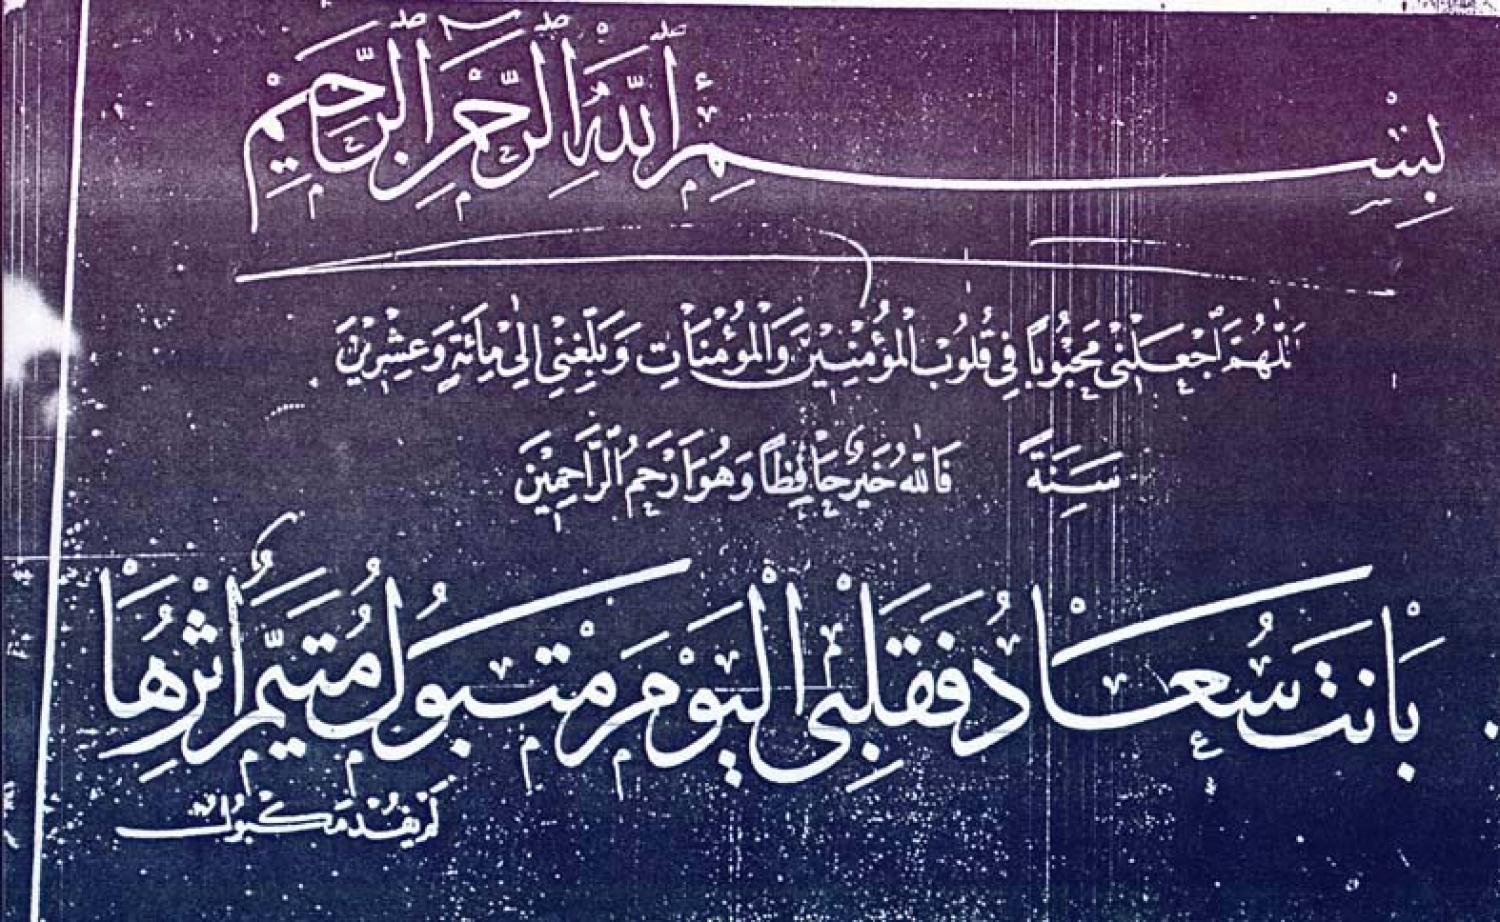 بِسْمِ اللهِ الرَّحْمنِ الرَّحِيمِ
اَللّٰهُمَّ اجْعَلْنِي مَحْبُوبًا فِي قُلُوبِ الْمُؤْمِنِينَ وَالْمُؤْمِنَاتِ وَبَلِّغْنِي إِلَىٰ مِائَةٍ وَعِشْرِينَ
سَنَةً فَاللهُ خَيْرٌ حَافِظًا وَهُوَ أَرْحَمُ الرَّاحِمِينَ
بَانَتْ سُعَادُ فَقَلْبِي الْيَوْمَ مَتْبُولُ مُتَيَّمٌ أَثْرَهَا
لَمْ يُفْدَ مَكْبُولُ